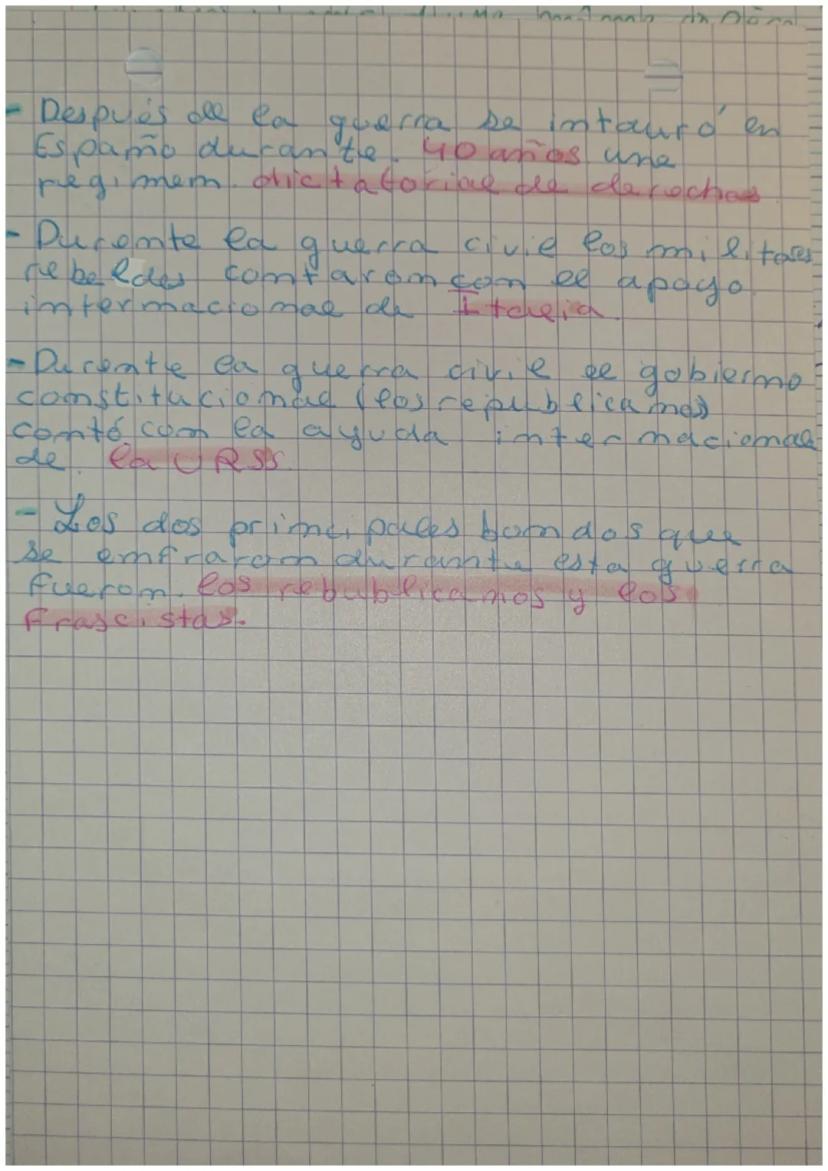 - Después de la guerra se intauró en
Españo durante. 40 años une
regimem. dictatorial de derechas
- Duromte la guerra civil los militares
rebeldes comtarom com el apoyo
intermaciomal de Italia.
- Duromte la guerra civil el gobiermo
comstituciomal (los republicamos)
comtó com la ayuda intermaciomal
de. la URSS
- Los dos primcipales bamdos que
se emfrarom durante esta guerra
fuerom. los rebublicamos y los
frascistas.